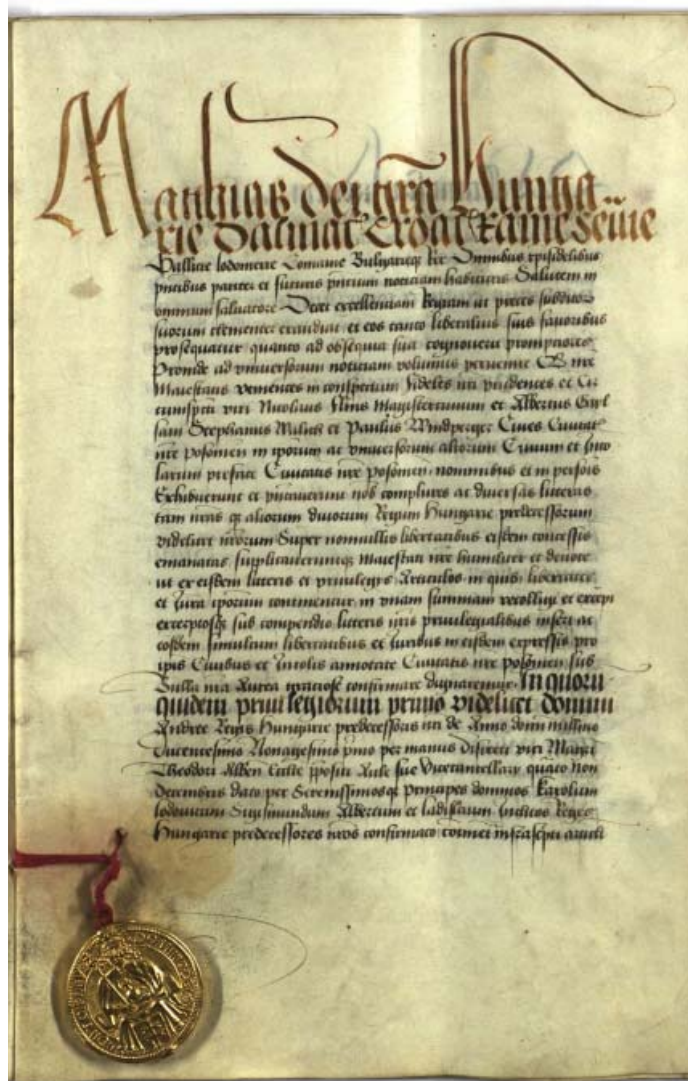 Mathias dei gra Hunga
rie Dalmat Croat Rame Servie
Gallicie lodomerie Comanie Bulgarieqz Rex Omnibus xpifidelibus
pntibus pariter et futuris pntium noticiam habituris Salutem in
omnium salvatore Decet excellentiam Regiam ut preces subditoz
suorum clementer exaudiat et eos tanto liberalius suis favoribus
prosequatur quanto ad obsequia sua cognoverit promptiores
Proinde ad universorum noticiam volumus pervenire Q nre
Maiestatis venientes in conspectum fideles nri prudentes et Cir
cumspecti viri Nicolaus Magistercivium et Albertus
Stephanus et Paulus Windperger Cives Civitat
nre poson in iporum ac universorum aliorum Civium et Inco
larum prefate Civitatis nre posonien nominibus et in psonis
Exhibuerunt et pntaverunt nob complures ac diversas litteras
tam nras qz aliorum divorum Regum Hungarie predecessorum
videlicet nrorum Super nonnullis libertatibus eisdem concessis
emanatas supplicaveruntqz Maiestati nre humiliter et devote
ut ex eisdem litteris et privilegys Articulos in quis libertates
et Jura iporum continentur in unam summam recolligi et excepi
excerptosqz sub compendio litteris nris privilegialibus inseri ac
eosdem simulcum libertatibus et Juribus in eisdem expressis pro
ipis Civibus et Incolis annotate Civitatis nre posonien sub
Bulla nra Aurea graciose confirmare dignaremur In quoru
quidem privilegiorum primo videlicet domini
Andree Regis Hungarie predecessoris nri de Anno domini millesimo
Ducentesimo Nonagesimo primo per manus discreti viri Magri
Theodori Alben Ecclie ppositi Aule sue Vicecancellary quarto Non
decembris dato per Serenissimosqz principes dominos Karolum
lodovicum Sigismundum Albertum et ladislaum Inclitos Reges
Hungarie predecessores nros confirmato continentur infrascripti articli